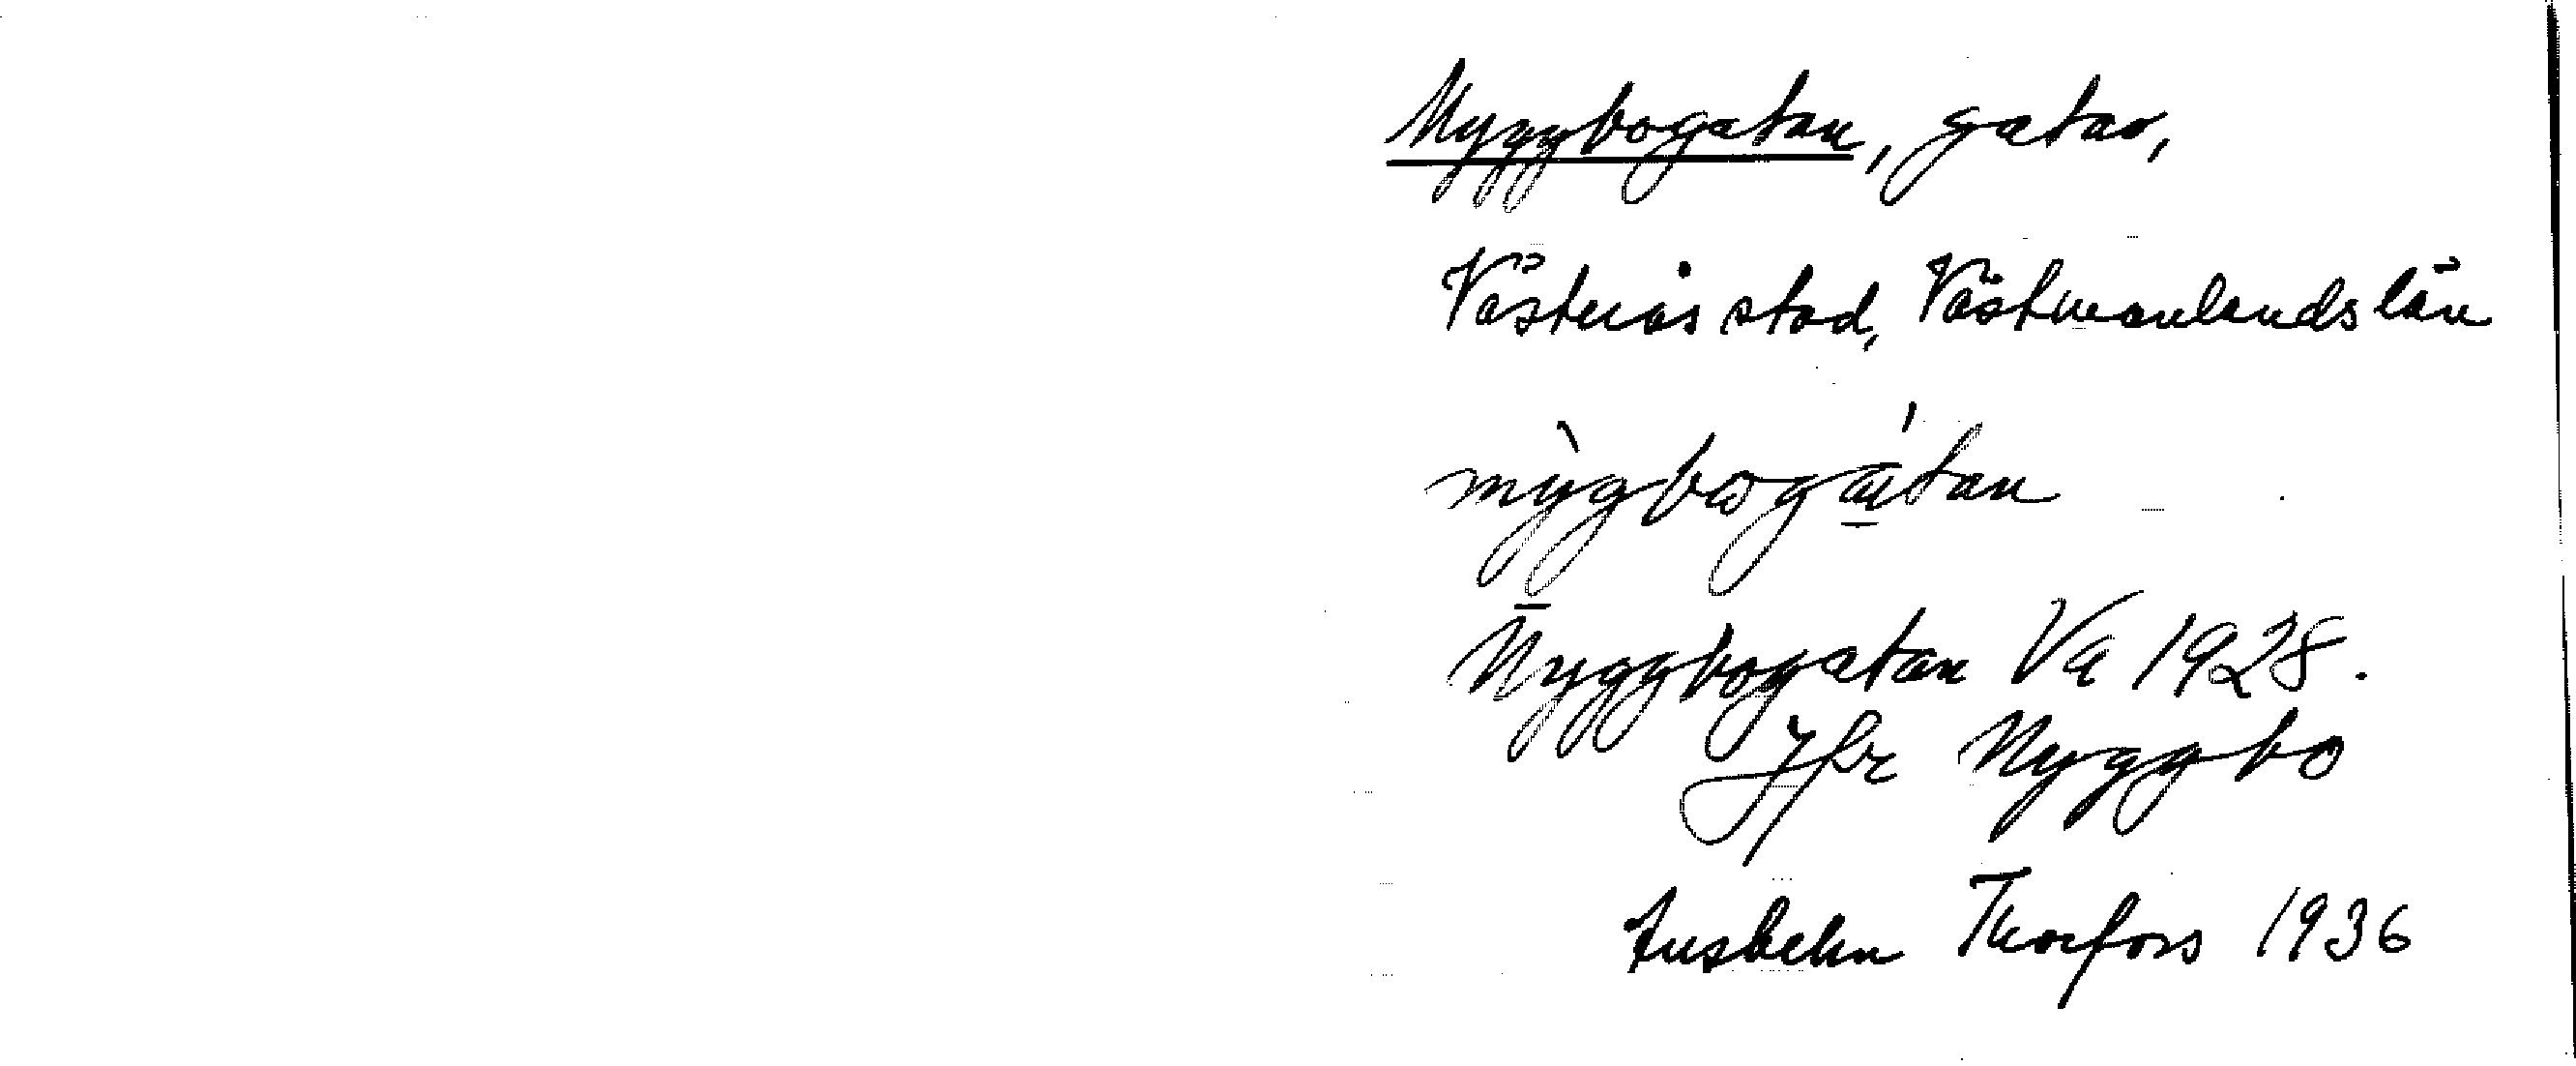 Myggbogatan, gatan,
Västerås stad, Västmanlands län
mỳgbωgátan
Myggbogatan Va 1928.
Jfr Myggbo
Thorfors 1936